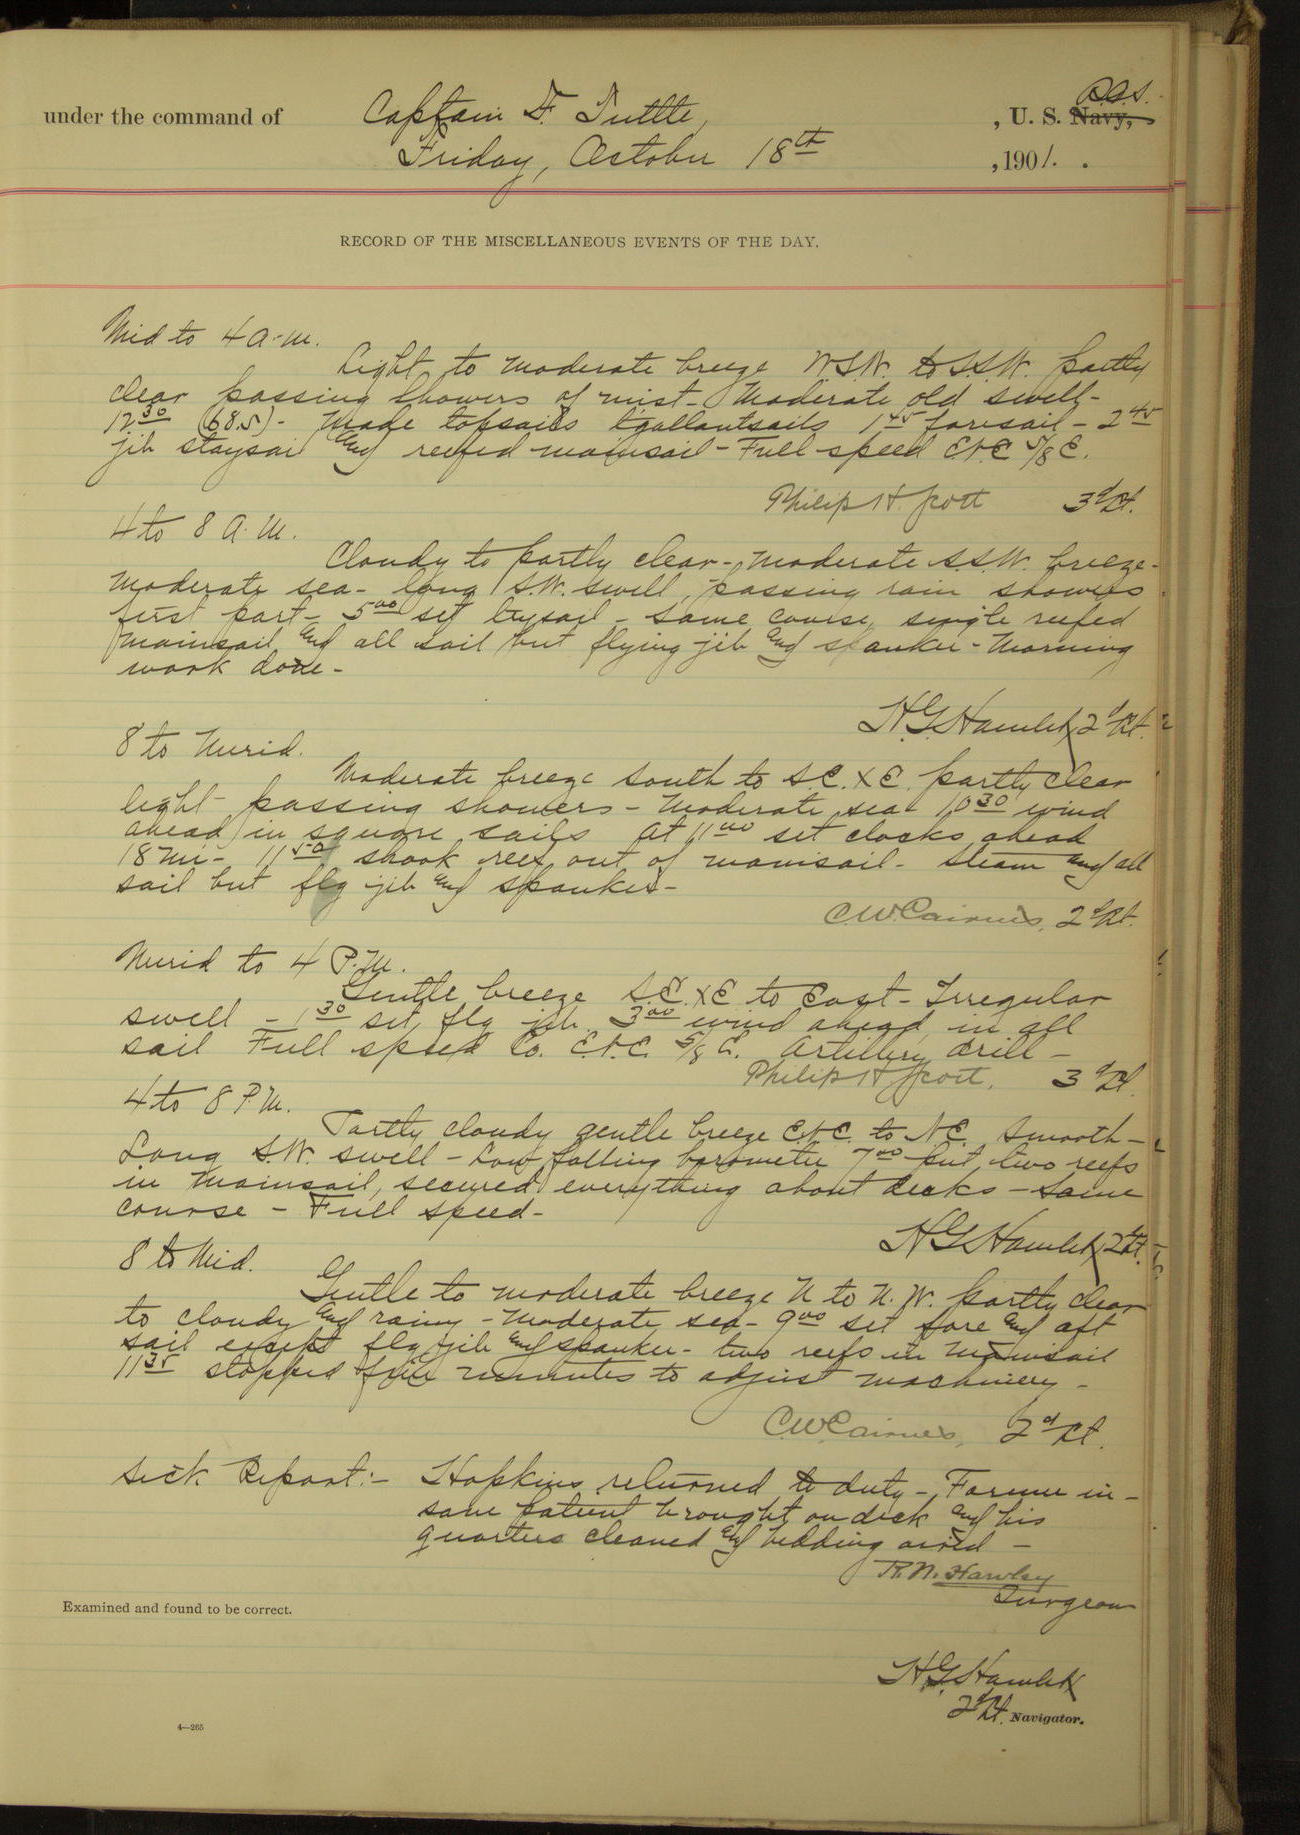 R.C.S.
under the command of Captain F. Tuttle, , U. S. Navy,
Friday, October 18th , 1901. .
RECORD OF THE MISCELLANEOUS EVENTS OF THE DAY.
Mid to 4 a.m.
Light to moderate breeze W.S.W. to S.S.W. partly
clear passing showers of mist - Moderate old swell -
12.30 (68.5) - Made topsails tgallantsails 1 45 foresail - 2 45
jib staysail and reefed mainsail - Full speed E.N.E. 5/8 E.
Philip H. Scott 3d Lt.
4 to 8 A.M.
Cloudy to partly clear - moderate S.S.W. breeze -
moderate sea - long S.W. swell, passing rain showers
first part - 5 00 set trysail - same course, single reefed
mainsail and all sail but flying jib and spanker - Morning
work done -
H.G. Hamlet, 2d Lt.
8 to Merid.
Moderate breeze South to S.E. x E. partly clear
light passing showers - Moderate sea - 10 30 wind
ahead in square sails At 11 00 set clocks ahead
18 mi - 11 50 shook reef out of mainsail - Steam and all
sail but flg jib and spanker -
C.W. Cairnes, 2d Lt.
Merid to 4 P.M.
Gentle breeze S.E. x E to East - Irregular
swell - 1 30 set flg jib 3 00 wind ahead in all
sail Full speed Co. E.N.E. 5/8 E. Artillery drill -
Philip H Scott, 3d Lt.
4 to 8 P.M.
Partly cloudy gentle breeze E.N.E. to N.E. Smooth -
Long S.W. swell - Low falling barometer 7 00 put two reefs
in mainsail, secured everything about decks - Same
course - Full speed -
H.G. Hamlet, 2d Lt.
8 to Mid.
Gentle to moderate breeze N to N.W. partly clear
to cloudy and rainy - Moderate sea - 9 00 set fore and aft
sail except flg jib and spanker - two reefs in mainsail
11 35 stopped five minutes to adjust machinery -
C.W. Cairnes, 2d Lt.
Sick Report: - Hopkins returned to duty - Former in-
sane patient brought on deck and his
quarters cleaned and bedding aired -
R.N. Hawley
Surgeon
Examined and found to be correct.
H.G. Hamlet
2d Lt. Navigator.
4—265